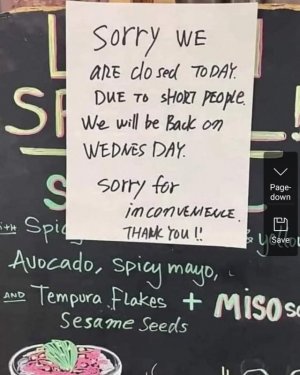 Sorry WE
ARE closed TODAY.
DUE TO SHORT PEOPLE.
We will be Back on
WEDNESDAY.
Sorry for
inconVENIENCE.
THANK YOU !!
Page-
down
Save
Avocado, spicy mayo,
AND Tempura Flakes + MISO
Sesame Seeds